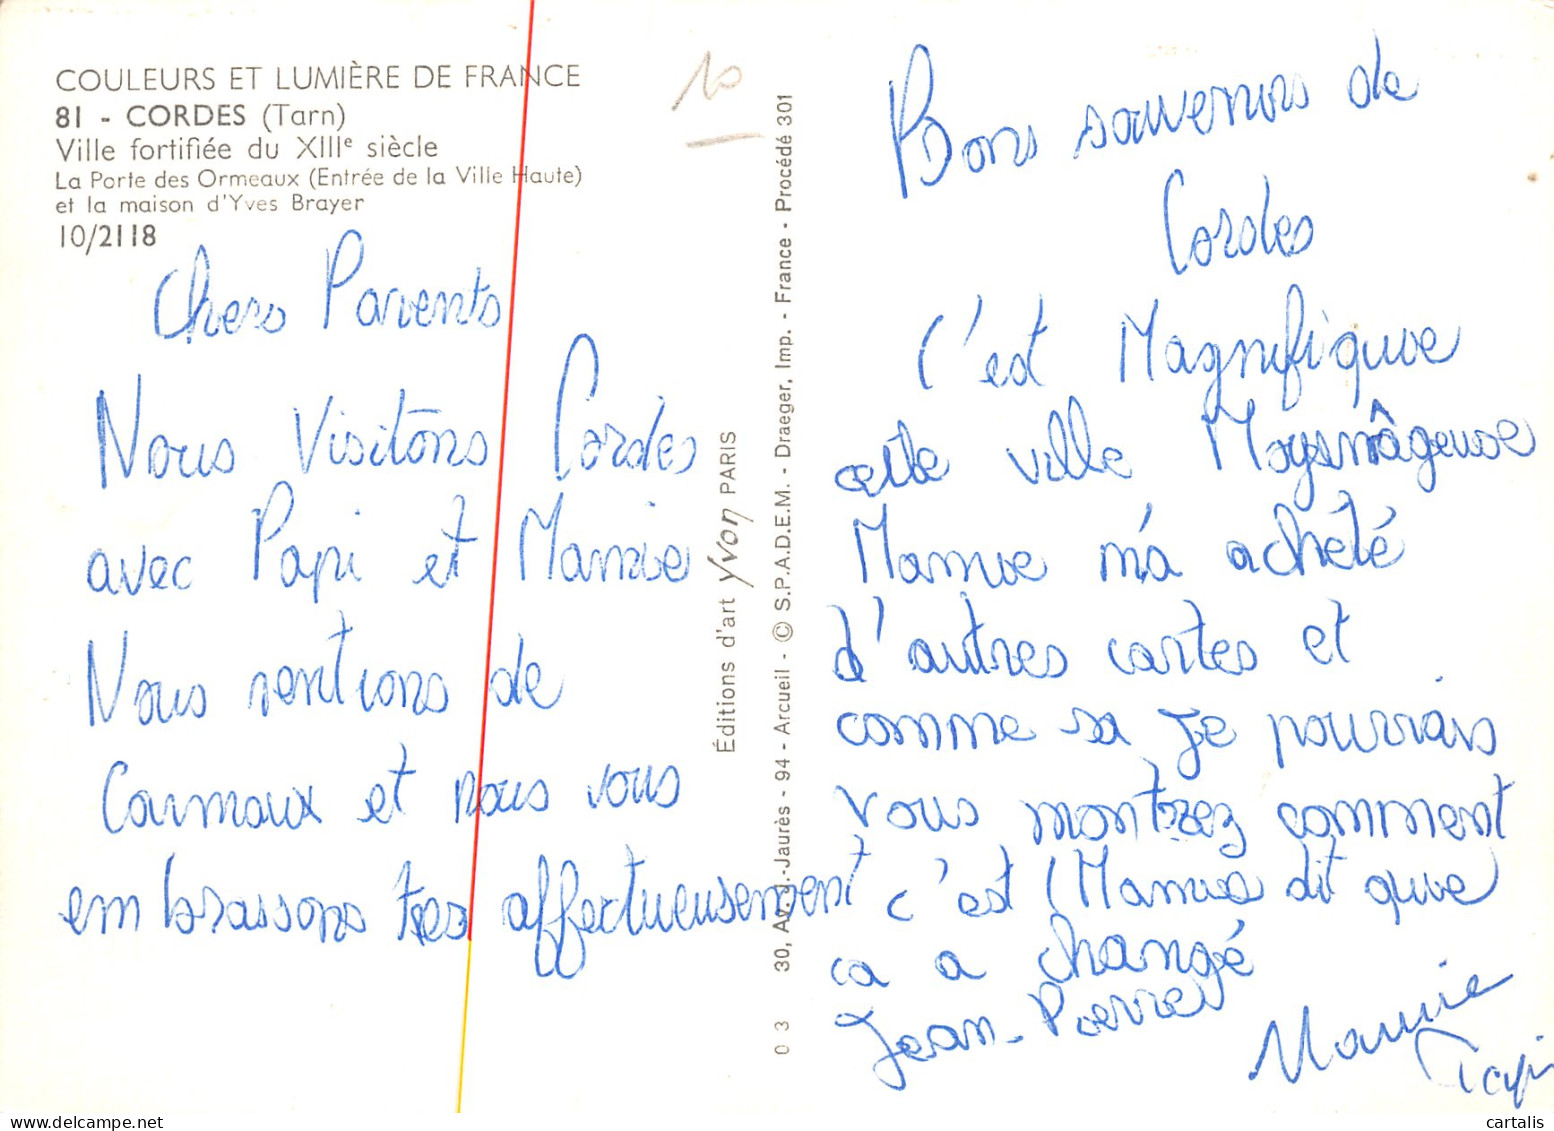 COULEURS ET LUMIÈRE DE FRANCE
81 - CORDES (Tarn)
Ville fortifiée du XIIIe siècle
La Porte des Ormeaux (Entrée de la Ville Haute)
et la maison d'Yves Brayer
10/2118
10
Chers Parents
Nous Visitons Cordes
avec Papi et Mamie
Nous rentrons de
Carmaux et nous vous
embrassons tres affectueusement
Éditions d'art Yvon PARIS
30, Av. J.-Jaurès - 94 - Arcueil - © S.P.A.D.E.M. - Draeger, Imp. - France - Procédé 301
0 3
Bons souvenirs de
Cordes
C'est Magnifique
cette ville Moyenâgeuse
Mamie m'a acheté
d'autres cartes et
comme sa je pourrais
vous montrez comment
c'est (Mamie dit que
ca a changé
Jean-Pierre)
Mamie
Papi
cartalis